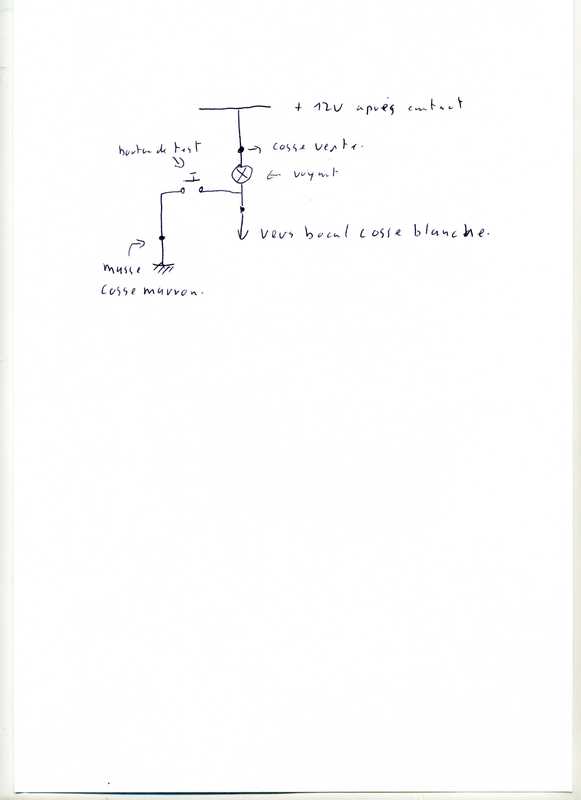 + 12V après contact
bouton de test
cosse verte.
voyant
vers bocal cosse blanche.
masse
cosse marron.